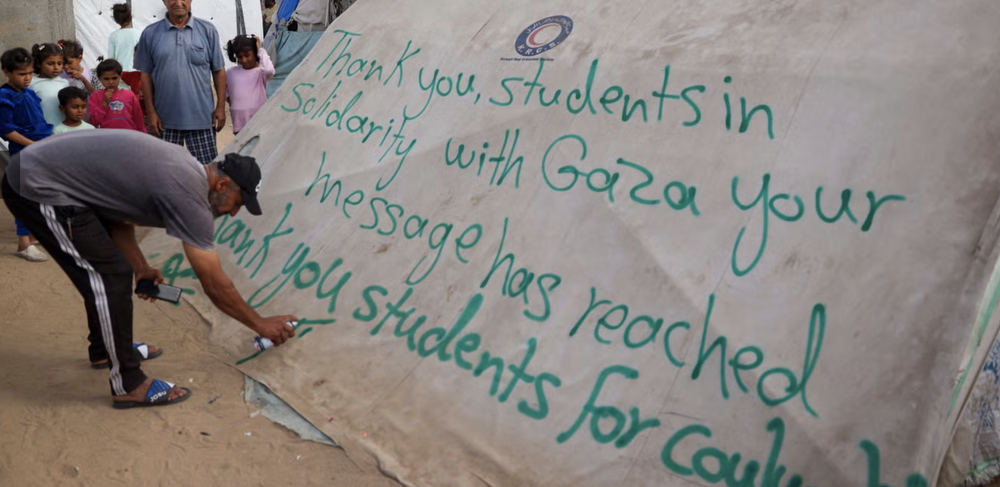 K.R.C.S
Thank you, students in
Solidarity with Gaza your
message has reached
thank you students for